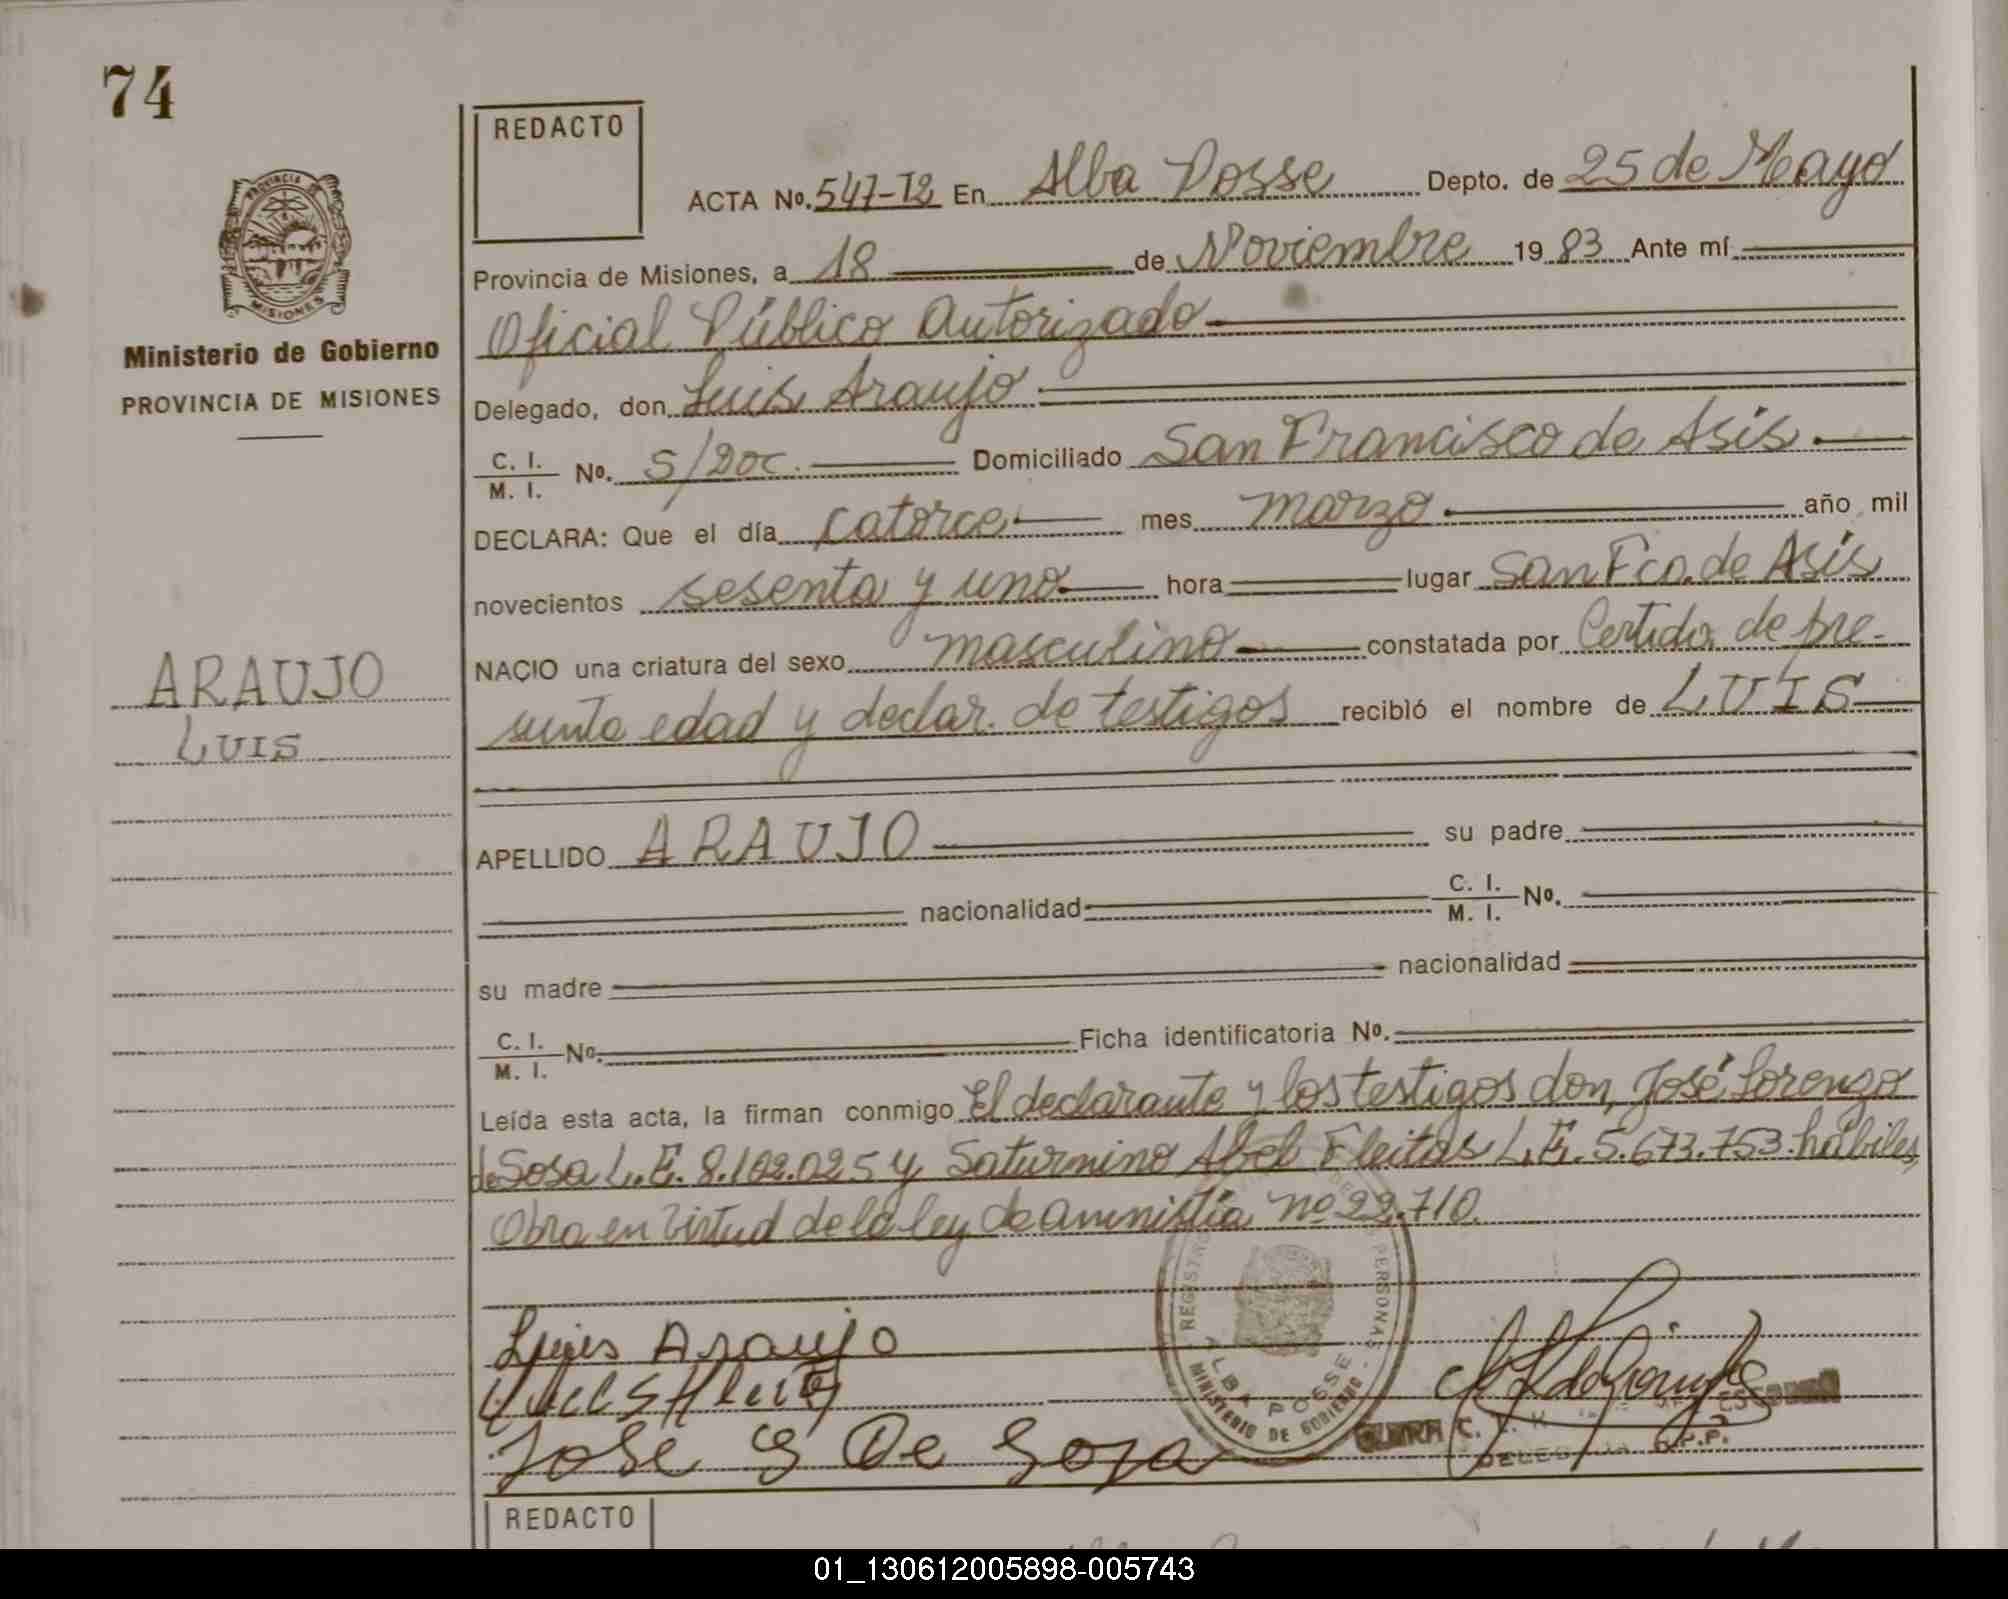 74
REDACTO
ACTA No. 547-T2 En Alba Posse Depto. de 25 de Mayo
Provincia de Misiones, a 18 de Noviembre 1983 Ante mí
Oficial Público Autorizado
Delegado, don Luis Araujo
C. I.
M. I. No. S/Doc. Domiciliado San Francisco de Asís
DECLARA: Que el día catorce mes marzo año mil
novecientos sesenta y uno hora lugar San Fco. de Asís
NACIO una criatura del sexo masculino constatada por Certido. de pre-
sunta edad y declar. de testigos recibió el nombre de LUIS
APELLIDO ARAUJO su padre
nacionalidad C. I.
M. I. No.
su madre nacionalidad
C. I.
M. I. No. Ficha identificatoria No.
Leída esta acta, la firman conmigo El declarante y los testigos don, José Lorenzo
de Sosa L.E. 8.102.025 y Saturnino Abel Fleitas L.E. 5.673.753. hábiles,
Obra en Virtud de la ley de amnistía nº 22.710.
Luis Araujo
José L De Soza
MISIONES
Ministerio de Gobierno
PROVINCIA DE MISIONES
ARAUJO
LUIS
ALBA POSSE
MINISTERIO DE GOBIERNO
REDACTO
01_130612005898-005743